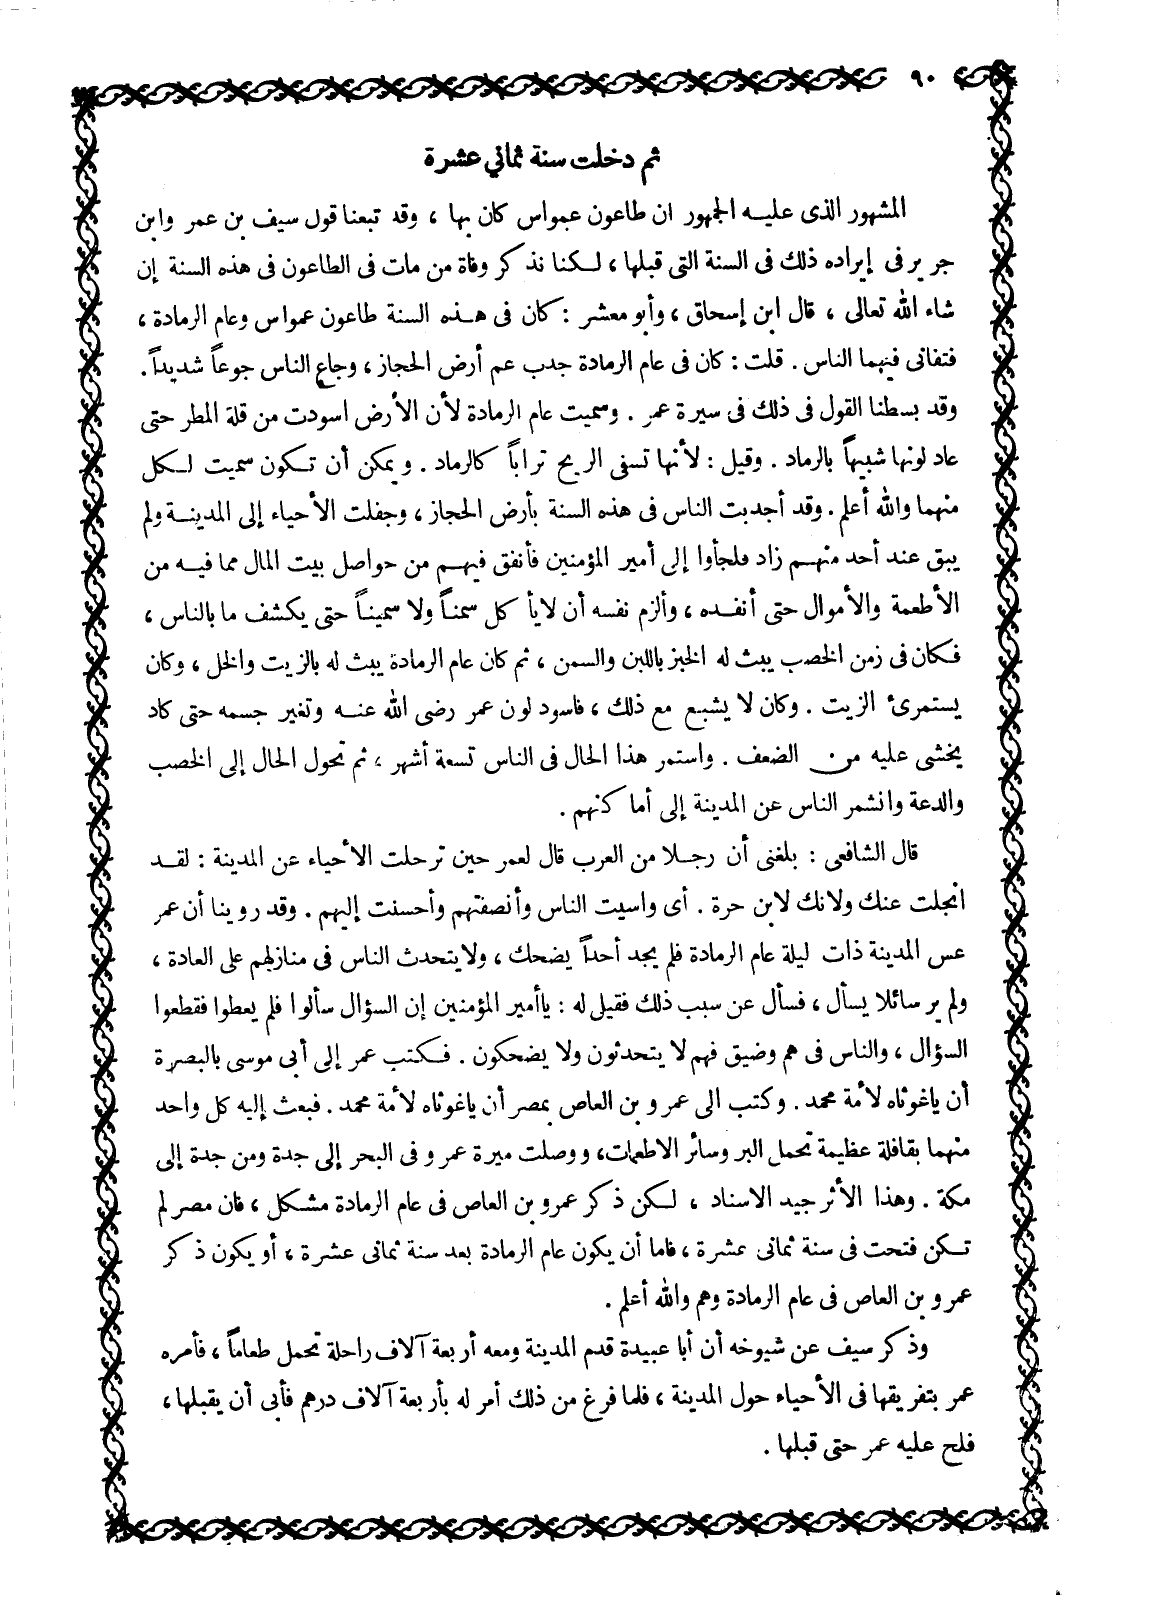 ٩٠
ثم دخلت سنة ثماني عشرة
المشهور الذى عليه الجمهور ان طاعون عمواس كان بها ، وقد تبعنا قول سيف بن عمر وابن
جرير فى إيراده ذلك فى السنة التى قبلها ، لكنا نذكر وفاة من مات فى الطاعون فى هذه السنة إن
شاء الله تعالى ، قال ابن إسحاق ، وأبو معشر : كان فى هذه السنة طاعون عمواس وعام الرمادة ،
فتفانى فيهما الناس . قلت : كان فى عام الرمادة جدب عم أرض الحجاز ، وجاع الناس جوعاً شديداً .
وقد بسطنا القول فى ذلك فى سيرة عمر . وسميت عام الرمادة لأن الأرض اسودت من قلة المطر حتى
عاد لونها شبيهاً بالرماد . وقيل : لأنها تسفى الريح تراباً كالرماد . ويمكن أن تكون سميت لكل
منهما والله أعلم . وقد أجدبت الناس فى هذه السنة بأرض الحجاز ، وجفلت الأحياء إلى المدينة ولم
يبق عند أحد منهم زاد فلجأوا إلى أمير المؤمنين فأنفق فيهم من حواصل بيت المال مما فيه من
الأطعمة والأموال حتى أنفده ، وألزم نفسه أن لايأكل سمناً ولا سميناً حتى يكشف ما بالناس ،
فكان فى زمن الخصب يبث له الخبز باللبن والسمن ، ثم كان عام الرمادة يبث له بالزيت والخل ، وكان
يستمرئ الزيت . وكان لا يشبع مع ذلك ، فاسود لون عمر رضى الله عنه وتغير جسمه حتى كاد
يخشى عليه من الضعف . واستمر هذا الحال فى الناس تسعة أشهر ، ثم تحول الحال إلى الخصب
والدعة وانشمر الناس عن المدينة إلى أماكنهم .
قال الشافعى : بلغنى أن رجلا من العرب قال لعمر حين ترحلت الأحياء عن المدينة : لقد
انجلت عنك ولانك لابن حرة . أى واسيت الناس وأنصفتهم وأحسنت إليهم . وقد روينا أن عمر
عس المدينة ذات ليلة عام الرمادة فلم يجد أحداً يضحك ، ولايتحدث الناس فى منازلهم على العادة ،
ولم ير سائلا يسأل ، فسأل عن سبب ذلك فقيل له : ياأمير المؤمنين إن السؤال سألوا فلم يعطوا فقطعوا
السؤال ، والناس فى هم وضيق فهم لا يتحدثون ولا يضحكون . فكتب عمر إلى أبى موسى بالبصرة
أن ياغوثاه لأمة محمد . وكتب الى عمرو بن العاص بمصر أن ياغوثاه لأمة محمد . فبعث إليه كل واحد
منهما بقافلة عظيمة تحمل البر وسائر الاطعمات، ووصلت ميرة عمرو فى البحر إلى جدة ومن جدة إلى
مكة . وهذا الأثر جيد الاسناد ، لكن ذكر عمرو بن العاص فى عام الرمادة مشكل ، فان مصر لم
تكن فتحت فى سنة ثمانى عشرة ، فاما أن يكون عام الرمادة بعد سنة ثمانى عشرة ، أو يكون ذكر
عمرو بن العاص فى عام الرمادة وهم والله أعلم .
وذكر سيف عن شيوخه أن أبا عبيدة قدم المدينة ومعه أربعة آلاف راحلة تحمل طعاماً ، فأمره
عمر بتفريقها فى الأحياء حول المدينة ، فلما فرغ من ذلك أمر له بأربعة آلاف درهم فأبى أن يقبلها ،
فلح عليه عمر حتى قبلها .